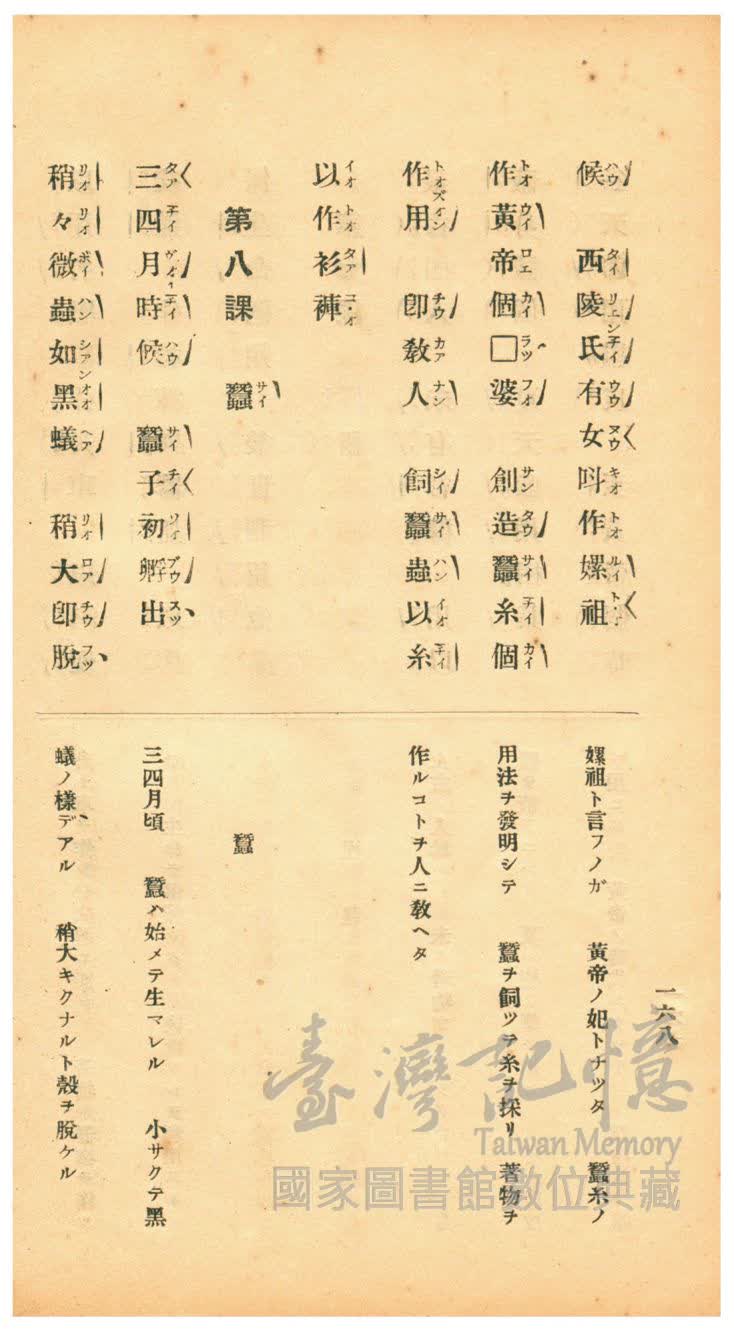 候 西陵氏有女呌作嫘祖
作黃帝個□婆 創造蠶糸個
作用 卽敎人 飼蠶蟲以糸
以作衫褲
第八課 蠶
三四月時候 蠶子初孵出
稍々微蟲如黑蟻 稍大卽脫
一六八
嫘祖ト言フノガ 黃帝ノ妃トナツタ 蠶糸ノ
用法ヲ發明シテ 蠶ヲ飼ツテ糸ヲ採リ 著物ヲ
作ルコトヲ人ニ敎ヘタ
蠶
三四月頃 蠶ハ始メテ生マレル 小サクテ黑
蟻ノ樣デアル 稍大キクナルト殼ヲ脫ケル
臺灣記憶
Taiwan Memory
國家圖書館數位典藏